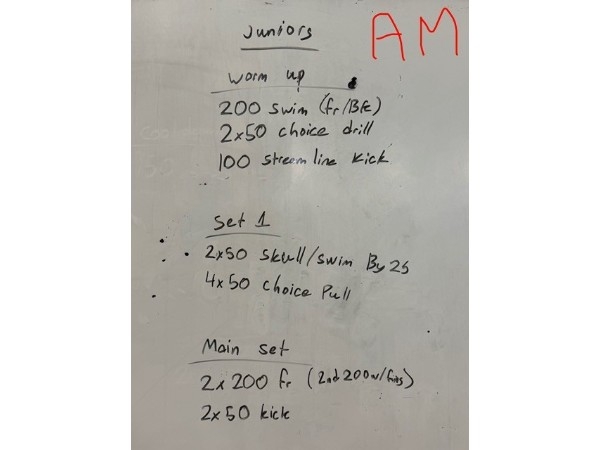 Juniors
AM
Warm up
200 swim (fr/Bk)
2x50 choice drill
100 streamline kick
Set 1
2x50 skull/swim By 25
4x50 choice Pull
Main set
2x200 fr (2nd 200 w/fins)
2x50 kick